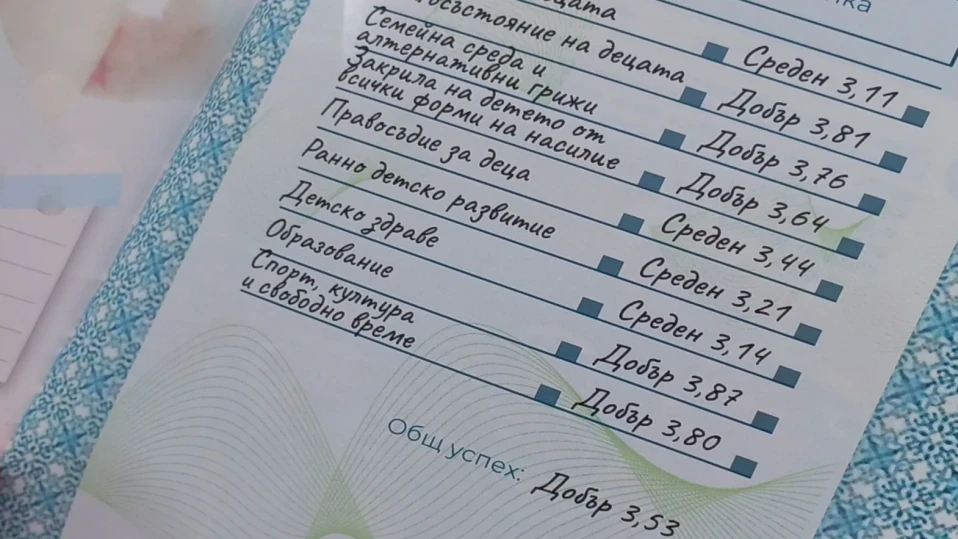 децата
Среден 3,11
състояние на децата
Добър 3,81
Семейна среда и
алтернативни грижи
Добър 3,76
Закрила на детето от
всички форми на насилие
Добър 3,64
Правосъдие за деца
Среден 3,44
Ранно детско развитие
Среден 3,21
Детско здраве
Среден 3,14
Образование
Добър 3,87
Спорт, култура
и свободно време
Добър 3,80
Общ успех:
Добър 3,53